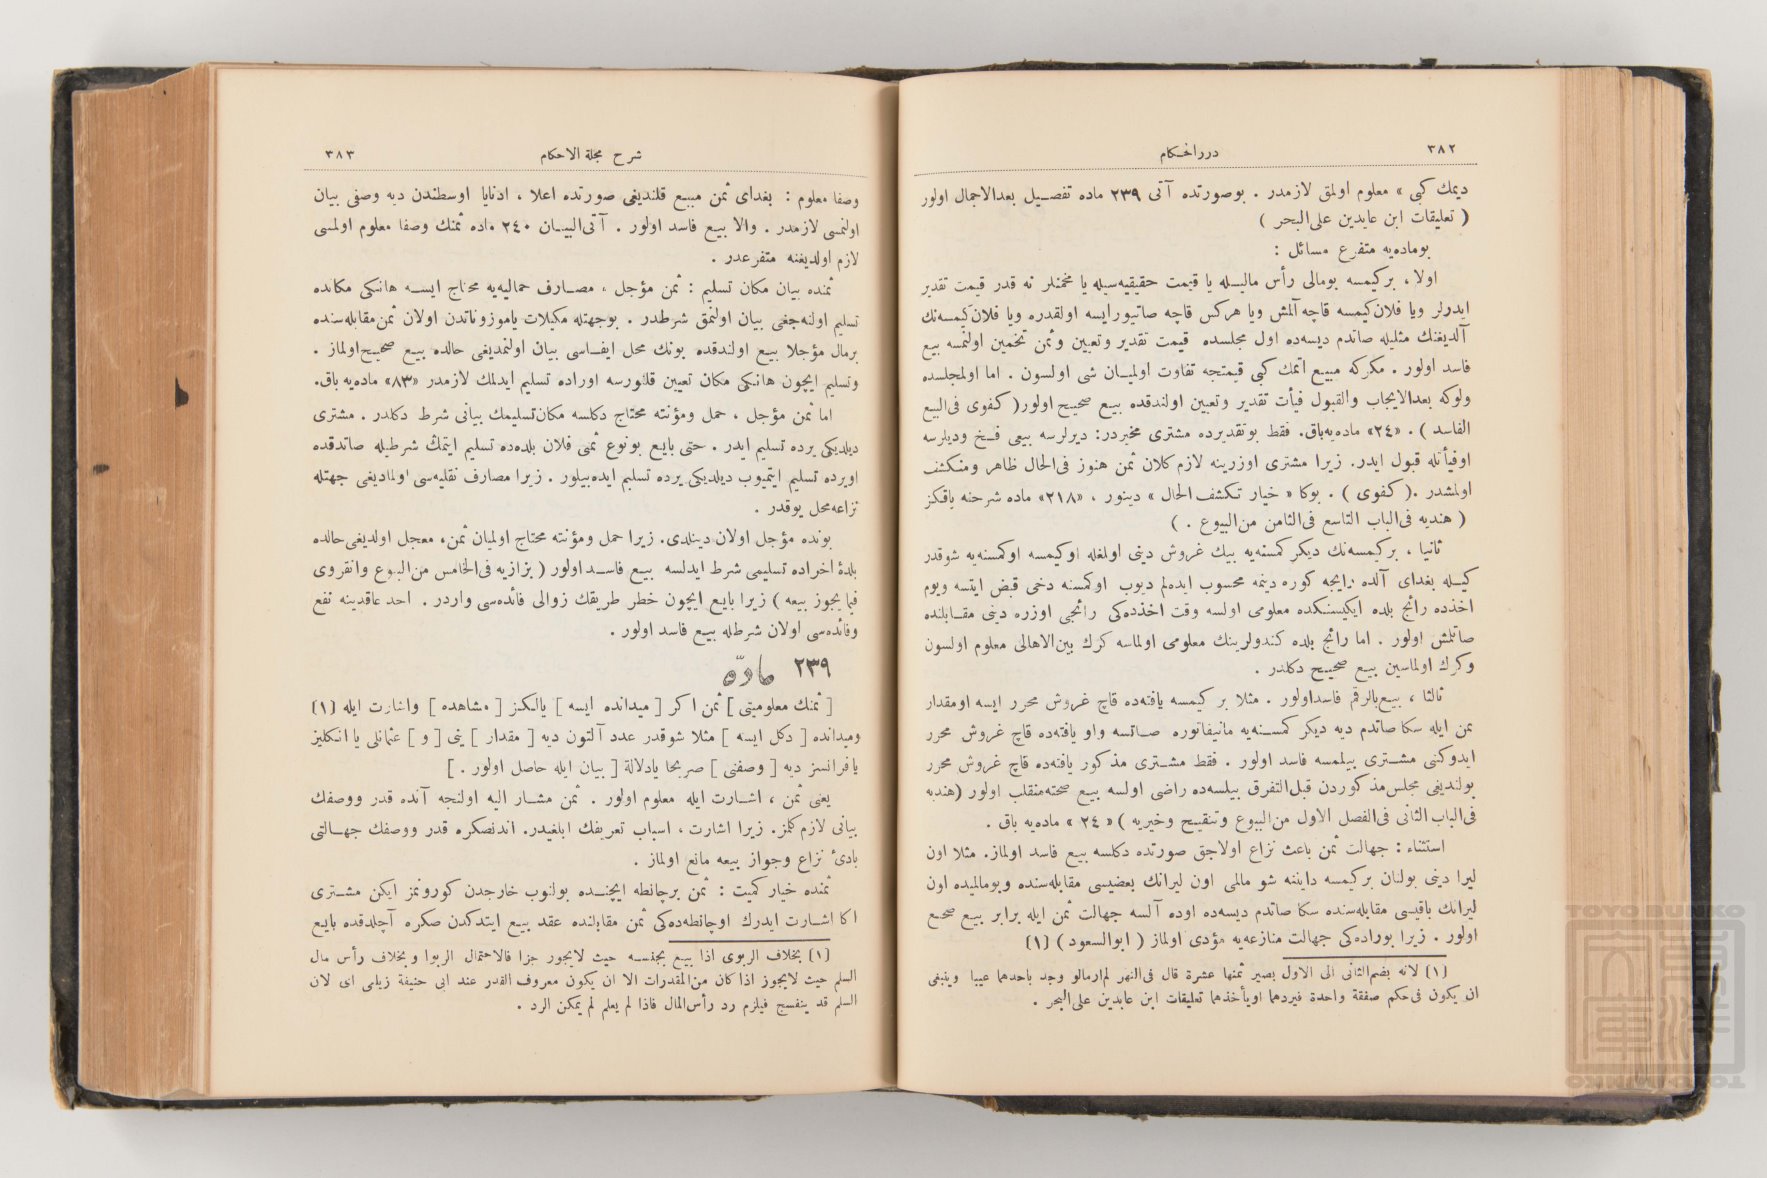 ٣٨٢
دررالحكام
ديمك كبى » معلوم اولمق لازمدر . بوصورتده آتى ٢٣٩ ماده تفصيل بعدالاجمال اولور
( تعليقات ابن عابدين على‌البحر )
بوماده‌يه متفرع مسائل :
اولا ، بركيمسه بومالى رأس ماليله يا قيمت حقيقيه‌سيله يا مخمنلر نه قدر قيمت تقدير
ايدرلر ويا فلان‌كيمسه قاچه آلمش ويا هركس قاچه صاتيورايسه اولقدره ويا فلان‌كيمسه‌نك
آلديغنك مثليله صاتدم ديسه‌ده اول مجلسده قيمت تقدير وتعيين وثمن تخمين اولنمسه بيع
فاسد اولور . مكركه مبيع اتمك كبى قيمتجه تفاوت اولميان شى اولسون . اما اولمجلسده
ولوكه بعدالايجاب والقبول فيأت تقدير وتعيين اولندقده بيع صحيح اولور ( كفوى فى‌البيع
الفاسد ) . «٢٤» ماده‌يه‌باق. فقط بوتقديرده مشترى مخيردر: ديلرسه بيعى فسخ وديلرسه
اوفيأتله قبول ايدر. زيرا مشترى اوزرينه لازم كلان ثمن هنوز فى‌الحال ظاهر ومنكشف
اولمشدر .( كفوى ) . بوكا « خيار تكشف الحال » دينور ، «٢١٨» ماده شرحنه باقكز
( هنديه فى‌الباب التاسع فى‌الثامن من‌البيوع . )
ثانيا ، بركيمسه‌نك ديكر كمسنه‌يه بيك غروش دينى اولمغله اوكيمسه اوكمسنه‌يه شوقدر
كيله بغداى آلده رايجه كوره دينمه محسوب ايده‌لم ديوب اوكمسنه دخى قبض ايتسه ويوم
اخذده رائج بلده ايكيسنكده معلومى اولسه وقت اخذده‌كى رائجى اوزره دينى مقابلنده
صاتلمش اولور . اما رائج بلده كندولرينك معلومى اولماسه كرك بين‌الاهالى معلوم اولسون
وكرك اولماسين بيع صحيح دكلدر .
ثالثا ، بيع‌بالرقم فاسداولور . مثلا بر كيمسه يافته‌ده قاچ غروش محرر ايسه اومقدار
ثمن ايله سكا صاتدم ديه ديكر كمسنه‌يه مانيفاتوره صاتسه واو يافته‌ده قاچ غروش محرر
ايدوكنى مشترى بيلمسه فاسد اولور . فقط مشترى مذكور يافته‌ده قاچ غروش محرر
بولنديغى مجلس‌مذكوردن قبل‌التفرق بيلسه‌ده راضى اولسه بيع صحته‌منقلب اولور (هنديه
فى‌الباب الثانى فى‌الفصل الاول من‌البيوع وتنقيح وخيريه )« ٢٤ » ماده‌يه باق .
استثناء : جهالت ثمن باعث نزاع اولاجق صورتده دكلسه بيع فاسد اولماز. مثلا اون
ليرا دينى بولنان بركيمسه داينه شو مالمى اون ليرانك بعضيسى مقابله‌سنده وبومالميده اون
ليرانك باقيسى مقابله‌سنده سكا صاتدم ديسه‌ده اوده آلسه جهالت ثمن ايله برابر بيع صحيح
اولور . زيرا بوراده‌كى جهالت منازعه‌يه مؤدى اولماز ( ابوالسعود ) (١)
(١) لانه بضم‌الثانى الى الاول يصير ثمنها عشرة قال فى‌النهر لم‌ارمالو وجد باحدهما عيبا وينبغى
ان يكون فى‌حكم صفقة واحدة فيردهما اويأخذهما تعليقات ابن عابدين على‌البحر .
شرح مجلة الاحكام
٣٨٣
وصفا معلوم : بغداى ثمن مبيع قلنديغى صورتده اعلا ، ادنايا اوسطندن ديه وصفى بيان
اولنمسى لازمدر . والا بيع فاسد اولور . آتى‌البيان ٢٤٠ ماده ثمنك وصفا معلوم اولمسى
لازم اولديغنه متفرعدر .
ثمنده بيان مكان تسليم : ثمن مؤجل ، مصارف حماليه‌يه محتاج ايسه هانكى مكانده
تسليم اولنه‌جغى بيان اولنمق شرطدر . بوجهتله مكيلات ياموزوناتدن اولان ثمن‌مقابله‌سنده
برمال مؤجلا بيع اولندقده بونك محل ايفاسى بيان اولنمديغى حالده بيع صحيح‌اولماز .
وتسليم ايچون هانكى مكان تعيين قلنورسه اوراده تسليم ايدلمك لازمدر «٨٣» ماده‌يه باق.
اما ثمن مؤجل ، حمل ومؤنته محتاج دكلسه مكان‌تسليمك بيانى شرط دكلدر . مشترى
ديلديكى يرده تسليم ايدر . حتى بايع بونوع ثمنى فلان بلده‌ده تسليم ايتمك شرطيله صاتدقده
اويرده تسليم ايتميوب ديلديكى يرده تسليم ايده‌بيلور . زيرا مصارف نقليه‌سى اولماديغى جهتله
نزاعه‌محل يوقدر .
بونده مؤجل اولان دينلدى. زيرا حمل ومؤنته محتاج اولميان ثمن، معجل اولديغى‌حالده
بلدهٔ اخراده تسليمى شرط ايدلسه بيع فاسد اولور ( بزازيه فى‌الخامس من‌البيوع وانقروى
فيما يجوز بيعه ) زيرا بايع ايچون خطر طريقك زوالى فائده‌سى واردر . احد عاقدينه نفع
وفائده‌سى اولان شرطله بيع فاسد اولور .
٢٣٩ مادّه
[ ثمنك معلوميتى ] ثمن اكر [ ميدانده ايسه ] يالكز [ مشاهده ] واشارت ايله (١)
وميدانده [ دكل ايسه ] مثلا شوقدر عدد آلتون ديه [ مقدار ] ينى [ و ] عثمانلى يا انكليز
يافرانسز ديه [ وصفنى ] صريحا يادلالة [ بيان ايله حاصل اولور . ]
يعنى ثمن ، اشارت ايله معلوم اولور . ثمن مشار اليه اولنجه آنده قدر ووصفك
بيانى لازم كلمز. زيرا اشارت ، اسباب تعريفك ابلغيدر. اندنصكره قدر ووصفك جهالتى
بادئ نزاع وجواز بيعه مانع اولماز .
ثمنده خيار كميت : ثمن برچانطه ايچنده بولنوب خارجدن كورونمز ايكن مشترى
اكا اشارت ايدرك اوچانطه‌ده‌كى ثمن مقابلنده عقد بيع ايتدكدن صكره آچلدقده بايع
(١) بخلاف الربوى اذا بيع بجنسه حيث لايجوز جزا فالاحتمال الربوا وبخلاف رأس مال
السلم حيث لايجوز اذا كان من‌المقدرات الا ان يكون معروف القدر عند ابى حنيفة زيلعى اى لان
السلم قد ينفسخ فيلزم رد رأس‌المال فاذا لم يعلم لم يمكن الرد .
TOYO BUNKO